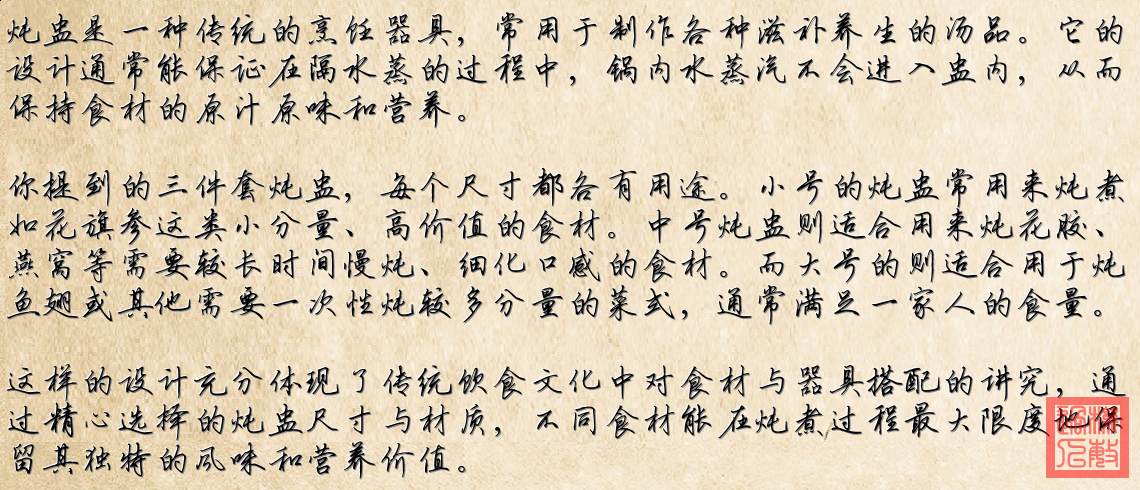 炖盅是一种传统的烹饪器具，常用于制作各种滋补养生的汤品。它的
设计通常能保证在隔水蒸的过程中，锅内水蒸汽不会进入盅内，从而
保持食材的原汁原味和营养。
你提到的三件套炖盅，每个尺寸都各有用途。小号的炖盅常用来炖煮
如花旗参这类小分量、高价值的食材。中号炖盅则适合用来炖花胶、
燕窝等需要较长时间慢炖、细化口感的食材。而大号的则适合用于炖
鱼翅或其他需要一次性炖较多分量的菜式，通常满足一家人的食量。
这样的设计充分体现了传统饮食文化中对食材与器具搭配的讲究，通
过精心选择的炖盅尺寸与材质，不同食材能在炖煮过程最大限度地保
留其独特的风味和营养价值。